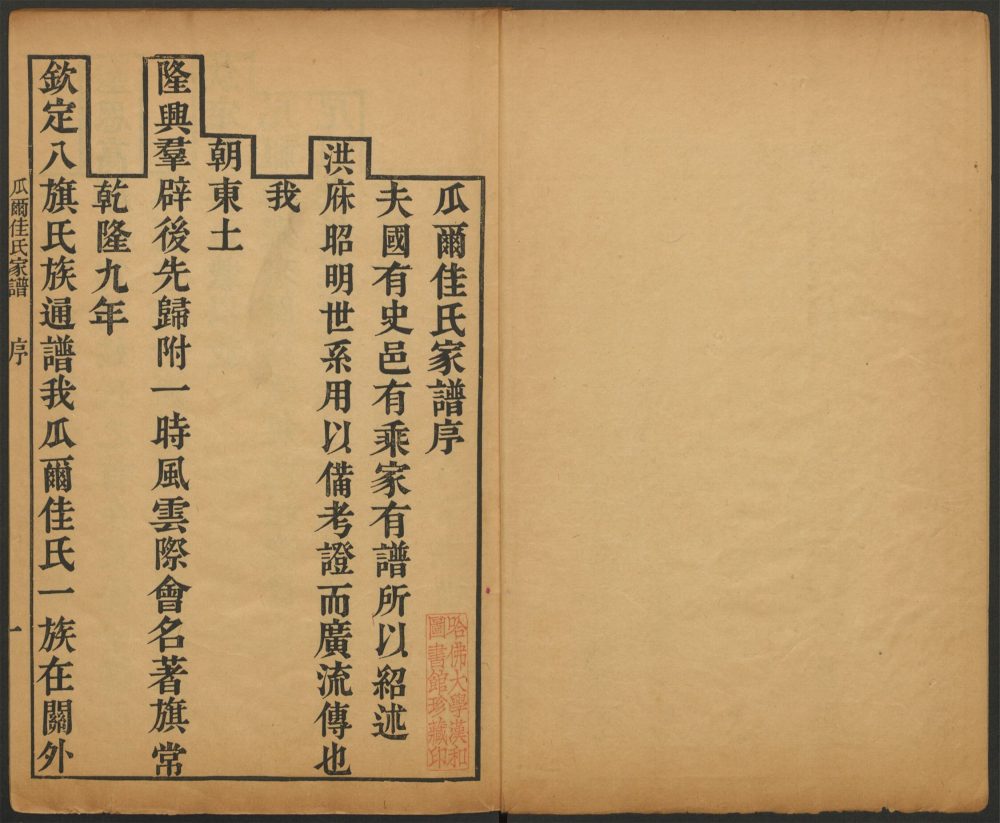 瓜爾佳氏家譜序
夫國有史邑有乘家有譜所以紹述
洪庥昭明世系用以備考證而廣流傳也
我
朝東土
隆興羣辟後先歸附一時風雲際會名著旗常
乾隆九年
欽定八旗氏族通譜我瓜爾佳氏一族在關外
瓜爾佳氏家譜 序 一
哈佛大學漢和
圖書館珍藏印